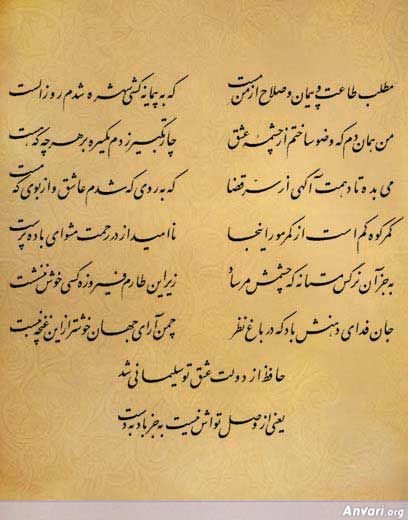 مطلب طاعت و پیمان و صلاح از من مست که به پیمانه کشی شهره شدم روز الست
من همان دم که وضو ساختم از چشمه عشق چار تکبیر زدم یکسره بر هر چه که هست
می بده تا دهمت آگهی از سر قضا که به روی که شدم عاشق و از بوی که مست
کمر کوه کم است از کمر مور اینجا ناامید از در رحمت مشو ای باده پرست
به جز آن نرگس مستانه که چشمش مرساد زیر این طارم فیروزه کسی خوش ننشست
جان فدای دهنش باد که در باغ نظر چمن آرای جهان خوشتر از این غنچه نبست
حافظ از دولت عشق تو سلیمانی شد
یعنی از وصل تواش نیست به جز باد به دست
Anvari.org